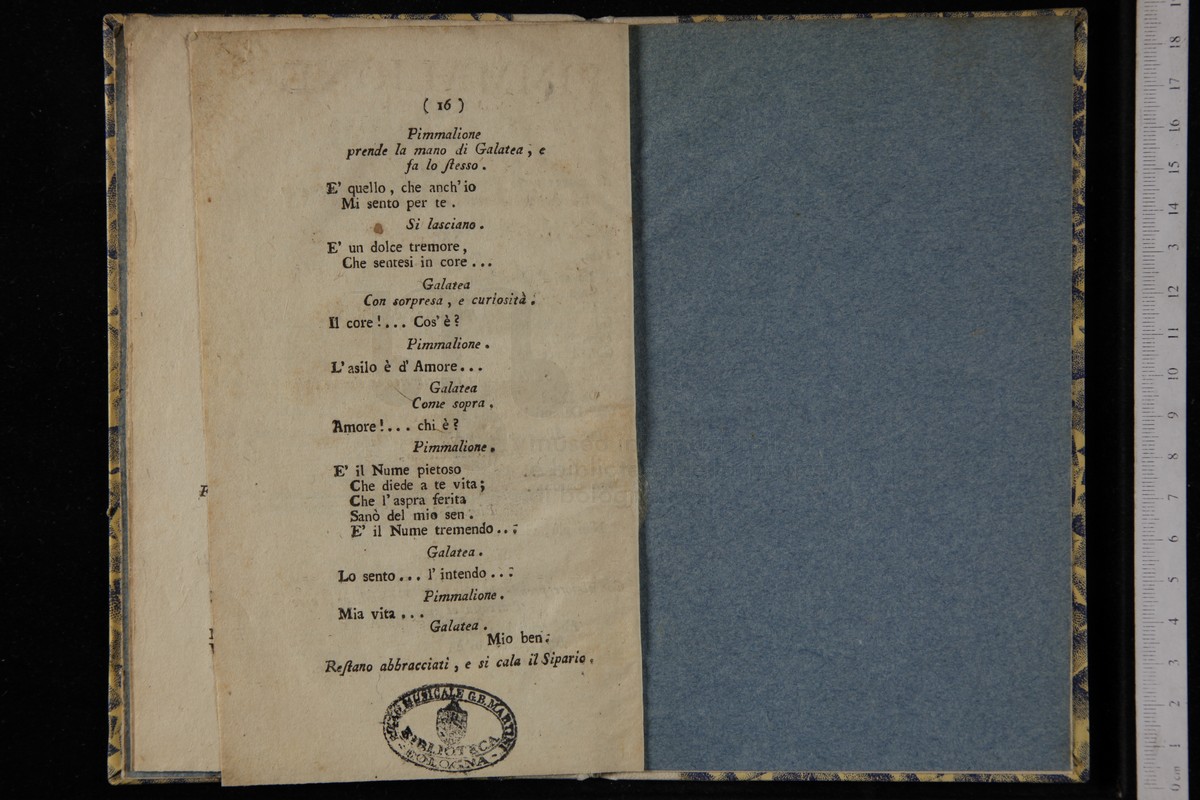 ( 16 )
Pimmalione
prende la mano di Galatea, e
fa lo ſteſſo.
E' quello, che anch'io
Mi sento per te.
Si lasciano.
E' un dolce tremore,
Che sentesi in core...
Galatea
Con sorpresa, e curiosità.
Il core!... Cos'è?
Pimmalione.
L'asilo è d'Amore...
Galatea
Come sopra.
Amore!... chi è?
Pimmalione.
E' il Nume pietoso
Che diede a te vita;
Che l'aspra ferita
Sanò del mio sen.
E' il Nume tremendo...
Galatea.
Lo sento... l'intendo...
Pimmalione.
Mia vita...
Galatea.
Mio ben.
Reſtano abbracciati, e si cala il Sipario.
MUSICALE G.B. MARTINI
BIBLIOTECA
BOLOGNA